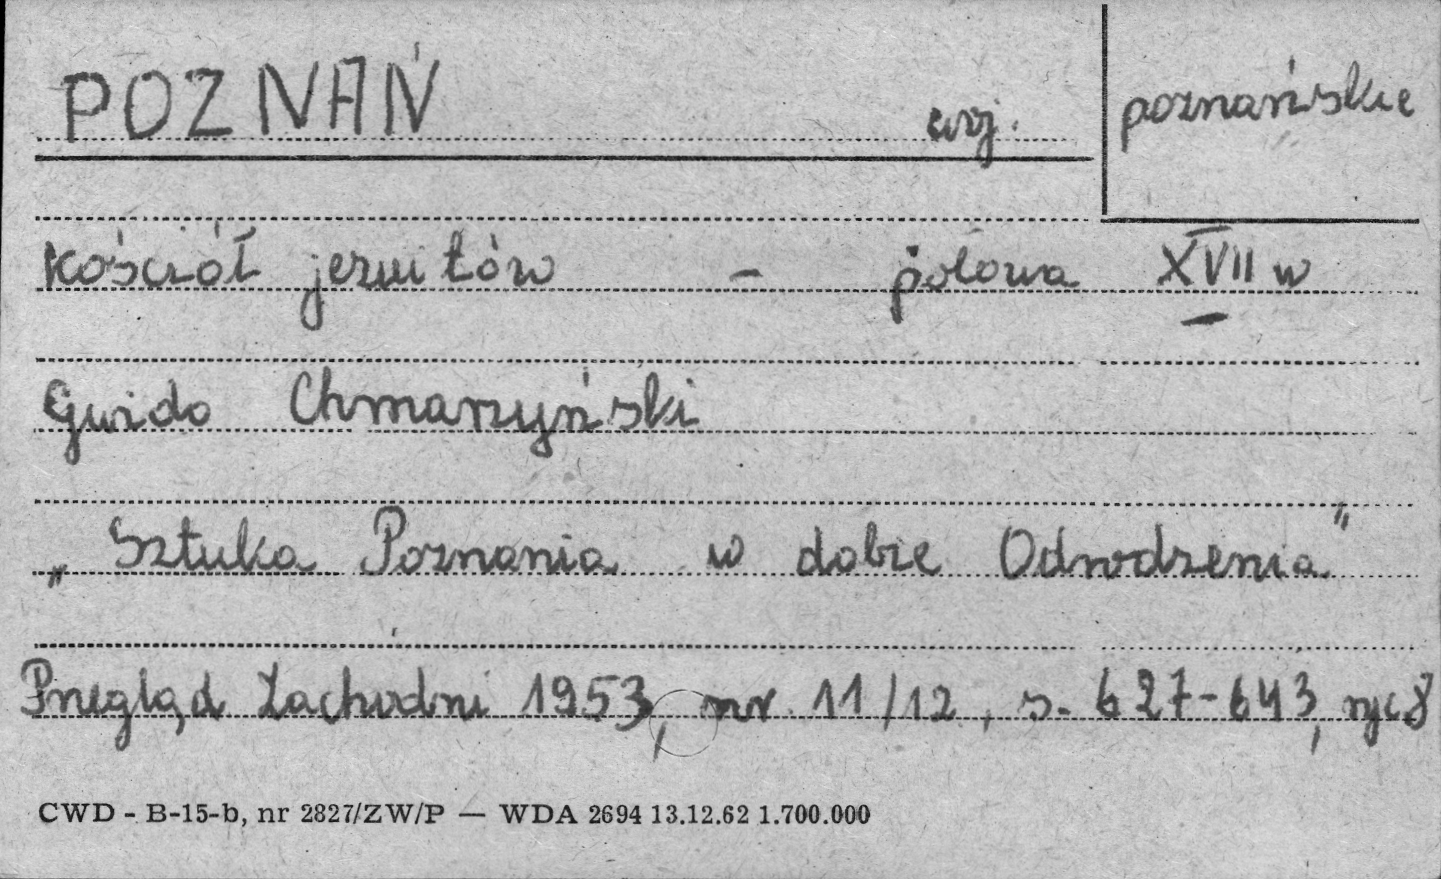 POZNAŃ woj. poznańskie
kościół jezuitów - połowa XVII w
Gwido Chmarzyński
„Sztuka Poznania w dobie Odrodzenia"
Przegląd Zachodni 1953, nr 11/12, s. 627-643, ryc 8
CWD - B-15-b, nr 2827/ZW/P — WDA 2694 13.12.62 1.700.000